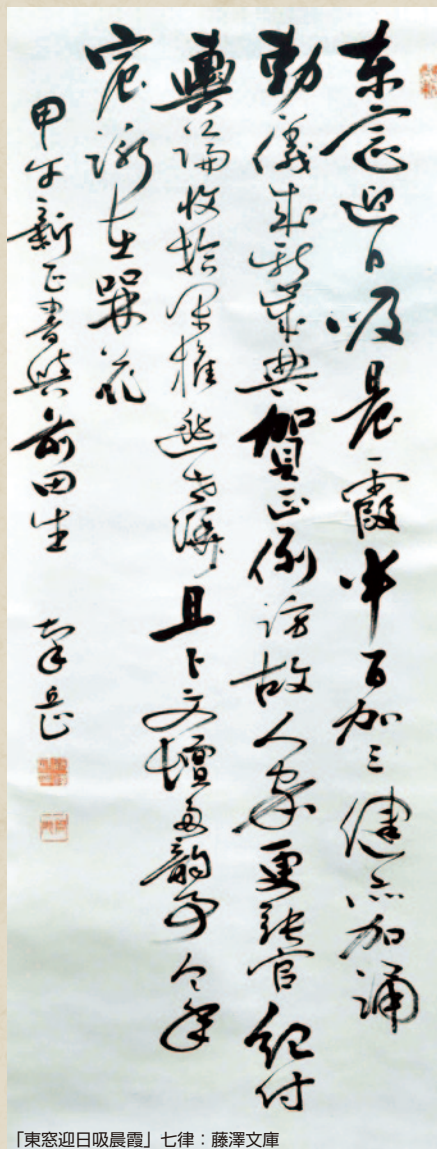 東窓迎日吸晨霞半百加三健亦加誦
勅儀成新歳典賀正例訪故人家更張官紀付
輿論收拾軍権且卜文壇多韻事今年
宸詠在槑花
甲午新正書與前田生 南岳
「東窓迎日吸晨霞」七律：藤澤文庫